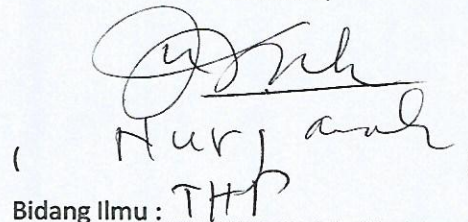 ( Nurjanah
Bidang Ilmu : THP